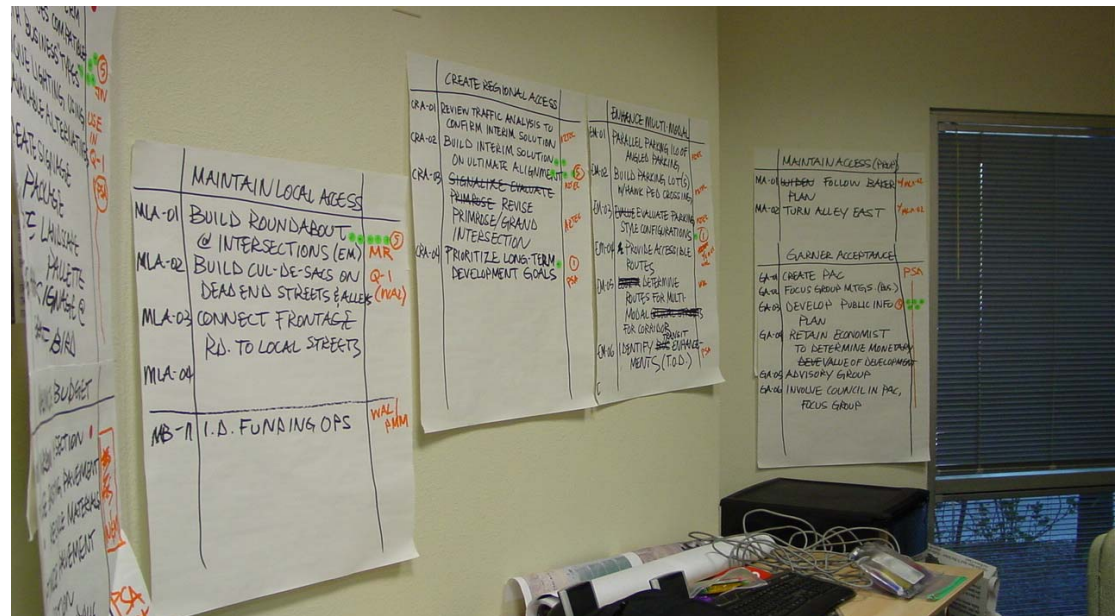 COMPATIBLE
BUSINESS TYPES
LIGHTING USING
AVAILABLE ALTERNATIVES
SIGNAGE
PACKAGE
LANDSCAPE
PALLETTE
SIGNAGE @
BIRD
5
JN
USE
IN
Q-1
PSA
BUDGET
SECTION
PAVEMENT
MATERIALS
PAVEMENT
PSA
MAINTAIN LOCAL ACCESS
MLA-01 BUILD ROUNDABOUT 5
@ INTERSECTIONS (EM) MR
MLA-02 BUILD CUL-DE-SACS ON Q-1
DEAD END STREETS & ALLEYS (WAL)
MLA-03 CONNECT FRONTAGE
RD. TO LOCAL STREETS
MLA-04
MB-11 I.D. FUNDING OPS WAL/
PMM
CREATE REGIONAL ACCESS
CRA-01 REVIEW TRAFFIC ANALYSIS TO
CONFIRM INTERIM SOLUTION AZTEC
CRA-02 BUILD INTERIM SOLUTION
ON ULTIMATE ALIGNMENT 5
CRA-03 SIGNALIZE EVALUATE AZTEC
PRIMROSE REVISE
PRIMROSE/GRAND AZTEC
INTERSECTION
CRA-04 PRIORITIZE LONG-TERM 1
DEVELOPMENT GOALS PSA
ENHANCE MULTI-MODAL
EM-01 PARALLEL PARKING ILO OF
ANGLED PARKING
EM-02 BUILD PARKING LOT(S)
W/HAWK PED CROSSING
EM-03 EVALUATE PARKING
STYLE CONFIGURATIONS 1
EM-04 PROVIDE ACCESSIBLE
ROUTES
EM-05 DETERMINE
ROUTES FOR MULTI-
MODAL
FOR CORRIDOR
TRANSIT
EM-06 IDENTIFY ENHANCE-
MENTS (T.O.D.) PSA
MAINTAIN ACCESS (PROP)
MA-01 WIDEN FOLLOW BAKER
PLAN
MA-02 TURN ALLEY EAST
GARNER ACCEPTANCE
GA-01 CREATE PAC PSA
GA-02 FOCUS GROUP MTGS. (BUS.)
GA-03 DEVELOP PUBLIC INFO
PLAN
GA-04 RETAIN ECONOMIST
TO DETERMINE MONETARY
DEVE VALUE OF DEVELOPMENT
GA-05 ADVISORY GROUP
GA-06 INVOLVE COUNCIL IN PAC,
FOCUS GROUP